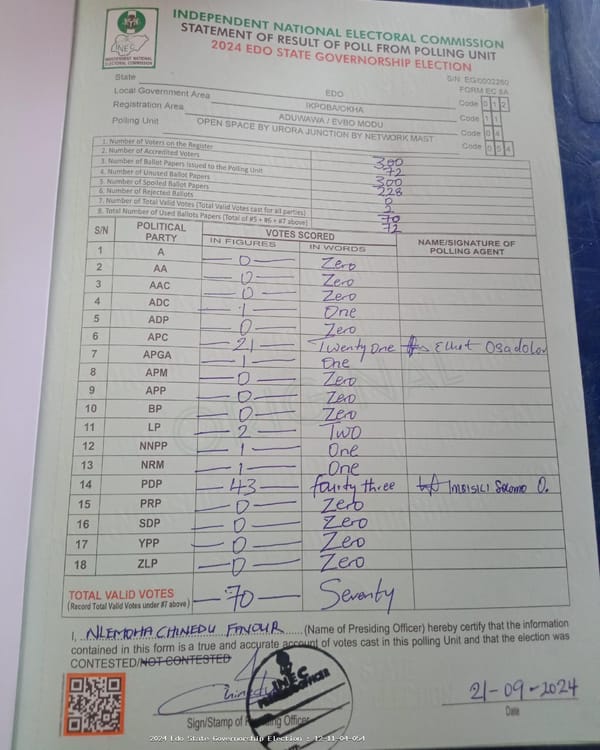 INDEPENDENT NATIONAL ELECTORAL COMMISSION
STATEMENT OF RESULT OF POLL FROM POLLING UNIT
2024 EDO STATE GOVERNORSHIP ELECTION
INEC
INDEPENDENT NATIONAL ELECTORAL COMMISSION
S/N: EG/0002260
FORM EC 8A
State EDO Code 0 1 2
Local Government Area IKPOBA/OKHA Code 1 1
Registration Area ADUWAWA / EVBO MODU Code 0 4
Polling Unit OPEN SPACE BY URORA JUNCTION BY NETWORK MAST Code 0 5 4
1. Number of Voters on the Register 300
2. Number of Accredited Voters 72
3. Number of Ballot Papers Issued to the Polling Unit 300
4. Number of Unused Ballot Papers 228
5. Number of Spoiled Ballot Papers 0
6. Number of Rejected Ballots 2
7. Number of Total Valid Votes (Total Valid Votes cast for all parties) 70
8. Total Number of Used Ballots Papers (Total of #5 + #6 + #7 above) 72
S/N POLITICAL PARTY VOTES SCORED NAME/SIGNATURE OF POLLING AGENT
IN FIGURES IN WORDS
1 A 0 Zero
2 AA 0 Zero
3 AAC 0 Zero
4 ADC 1 One
5 ADP 0 Zero
6 APC 21 Twenty One Elliot Osadolor
7 APGA 1 One
8 APM 0 Zero
9 APP 0 Zero
10 BP 0 Zero
11 LP 2 Two
12 NNPP 1 One
13 NRM 1 One
14 PDP 43 fourty three Solomo O.
15 PRP 0 Zero
16 SDP 0 Zero
17 YPP 0 Zero
18 ZLP 0 Zero
TOTAL VALID VOTES 70 Seventy
(Record Total Valid Votes under #7 above)
I, NLEMOHA CHINEDU FAVOUR (Name of Presiding Officer) hereby certify that the information
contained in this form is a true and accurate account of votes cast in this polling Unit and that the election was
CONTESTED/NOT CONTESTED
Chinedu
INEC
PRESIDING OFFICER
21-09-2024
Sign/Stamp of Presiding Officer
Date
2024 Edo State Governorship Election : 12-11-04-054